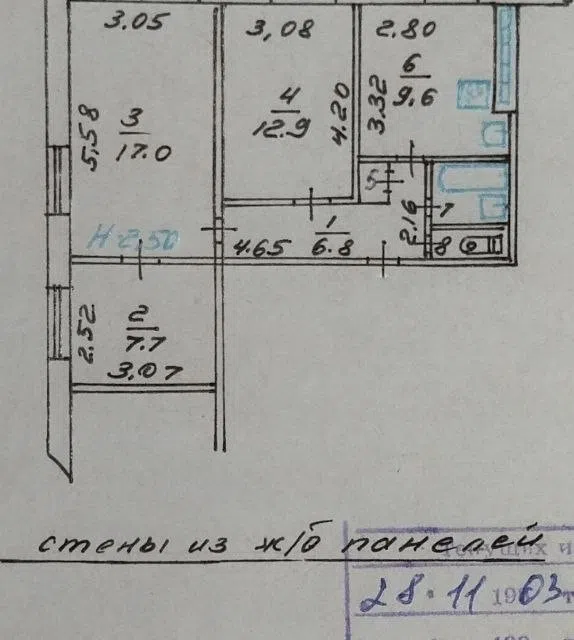 3.05
3,08
2.80
6
9.6
4
12.9
4.20
3.32
5,58
3
17.0
5
7
H-2,50
1
6.8
4.65
2.16
8
2.52
2
7.7
3,07
стены из ж/б панелей
текущих и
28.11 1903